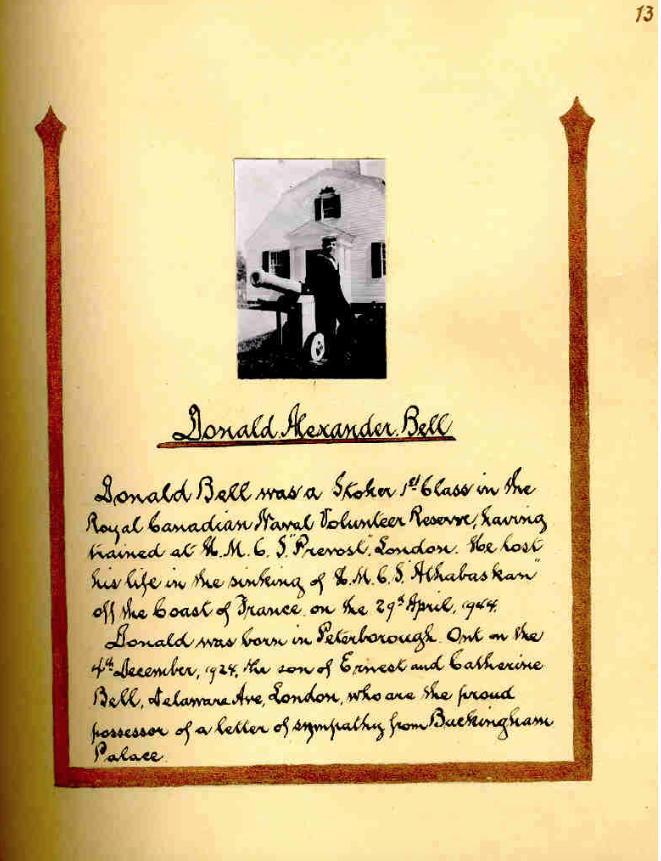 13
Donald Alexander Bell
Donald Bell was a Stoker 1st Class in the
Royal Canadian Naval Volunteer Reserve, having
trained at H.M.C.S "Prevost", London. He lost
his life in the sinking of H.M.C.S "Athabaskan"
off the Coast of France on the 29th April, 1944.
Donald was born in Peterborough. Ont on the
4th December, 1924, the son of Ernest and Catherine
Bell, Delaware Ave, London, who are the proud
possessor of a letter of sympathy from Buckingham
Palace.